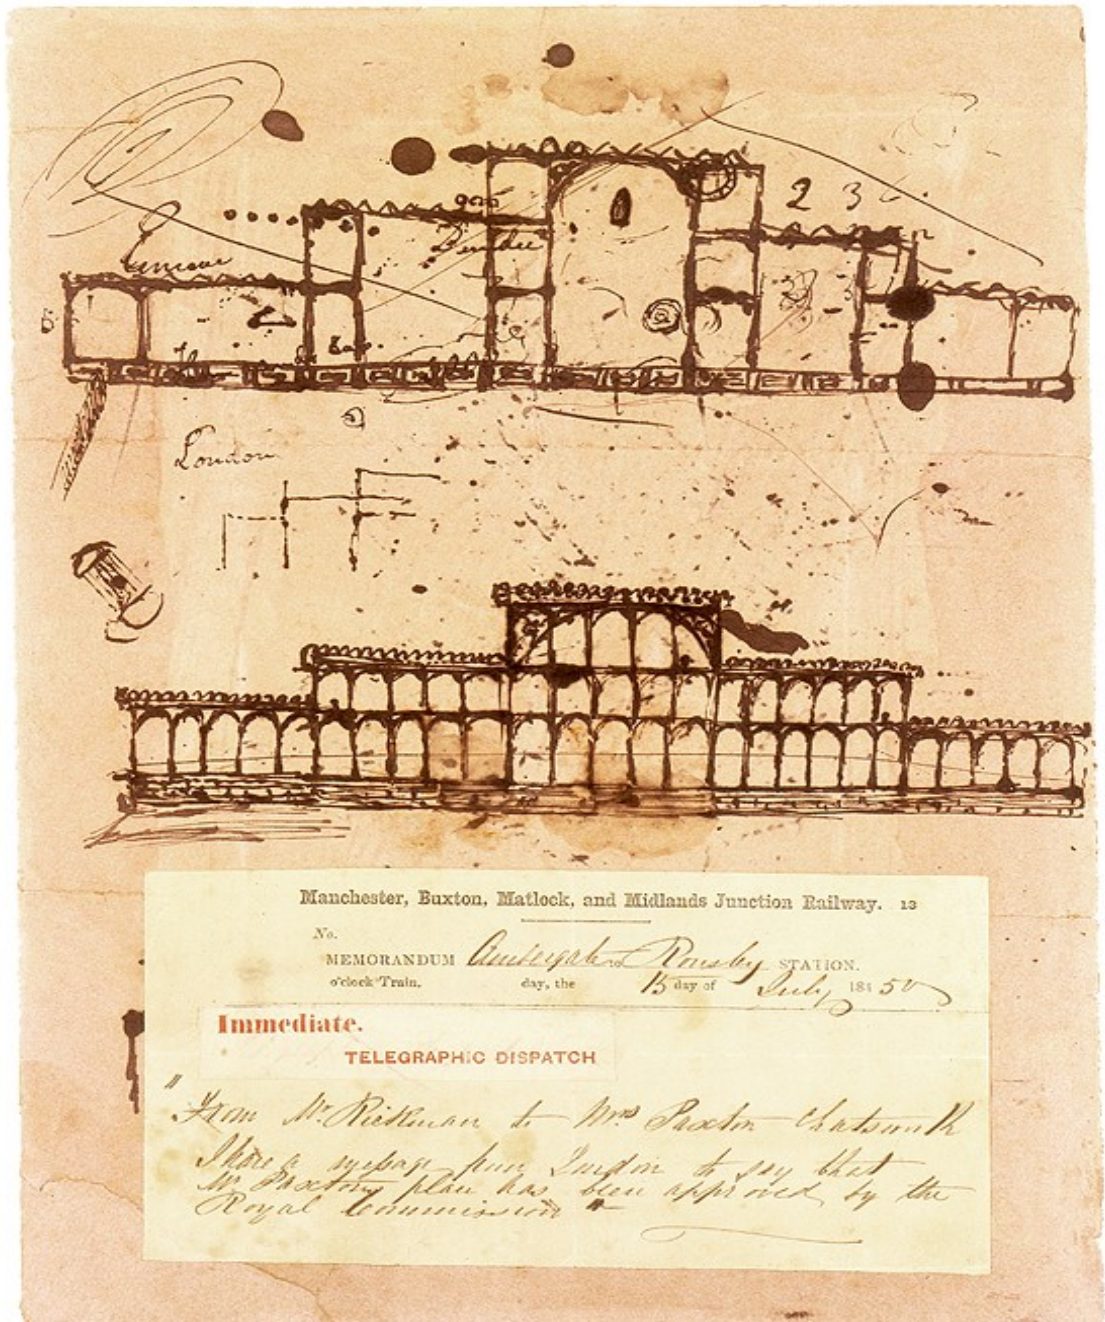 2 3
London
Manchester, Buxton, Matlock, and Midlands Junction Railway. 13
No.
MEMORANDUM Ambergate to Rowsley STATION.
o'clock Train, day, the 15 day of July 1850
Immediate.
TELEGRAPHIC DISPATCH
"From Mr. Rickman to Mrs Paxton Chatsworth
I have a message from London to say that
Mr Paxtons plan has been approved by the
Royal Commission"